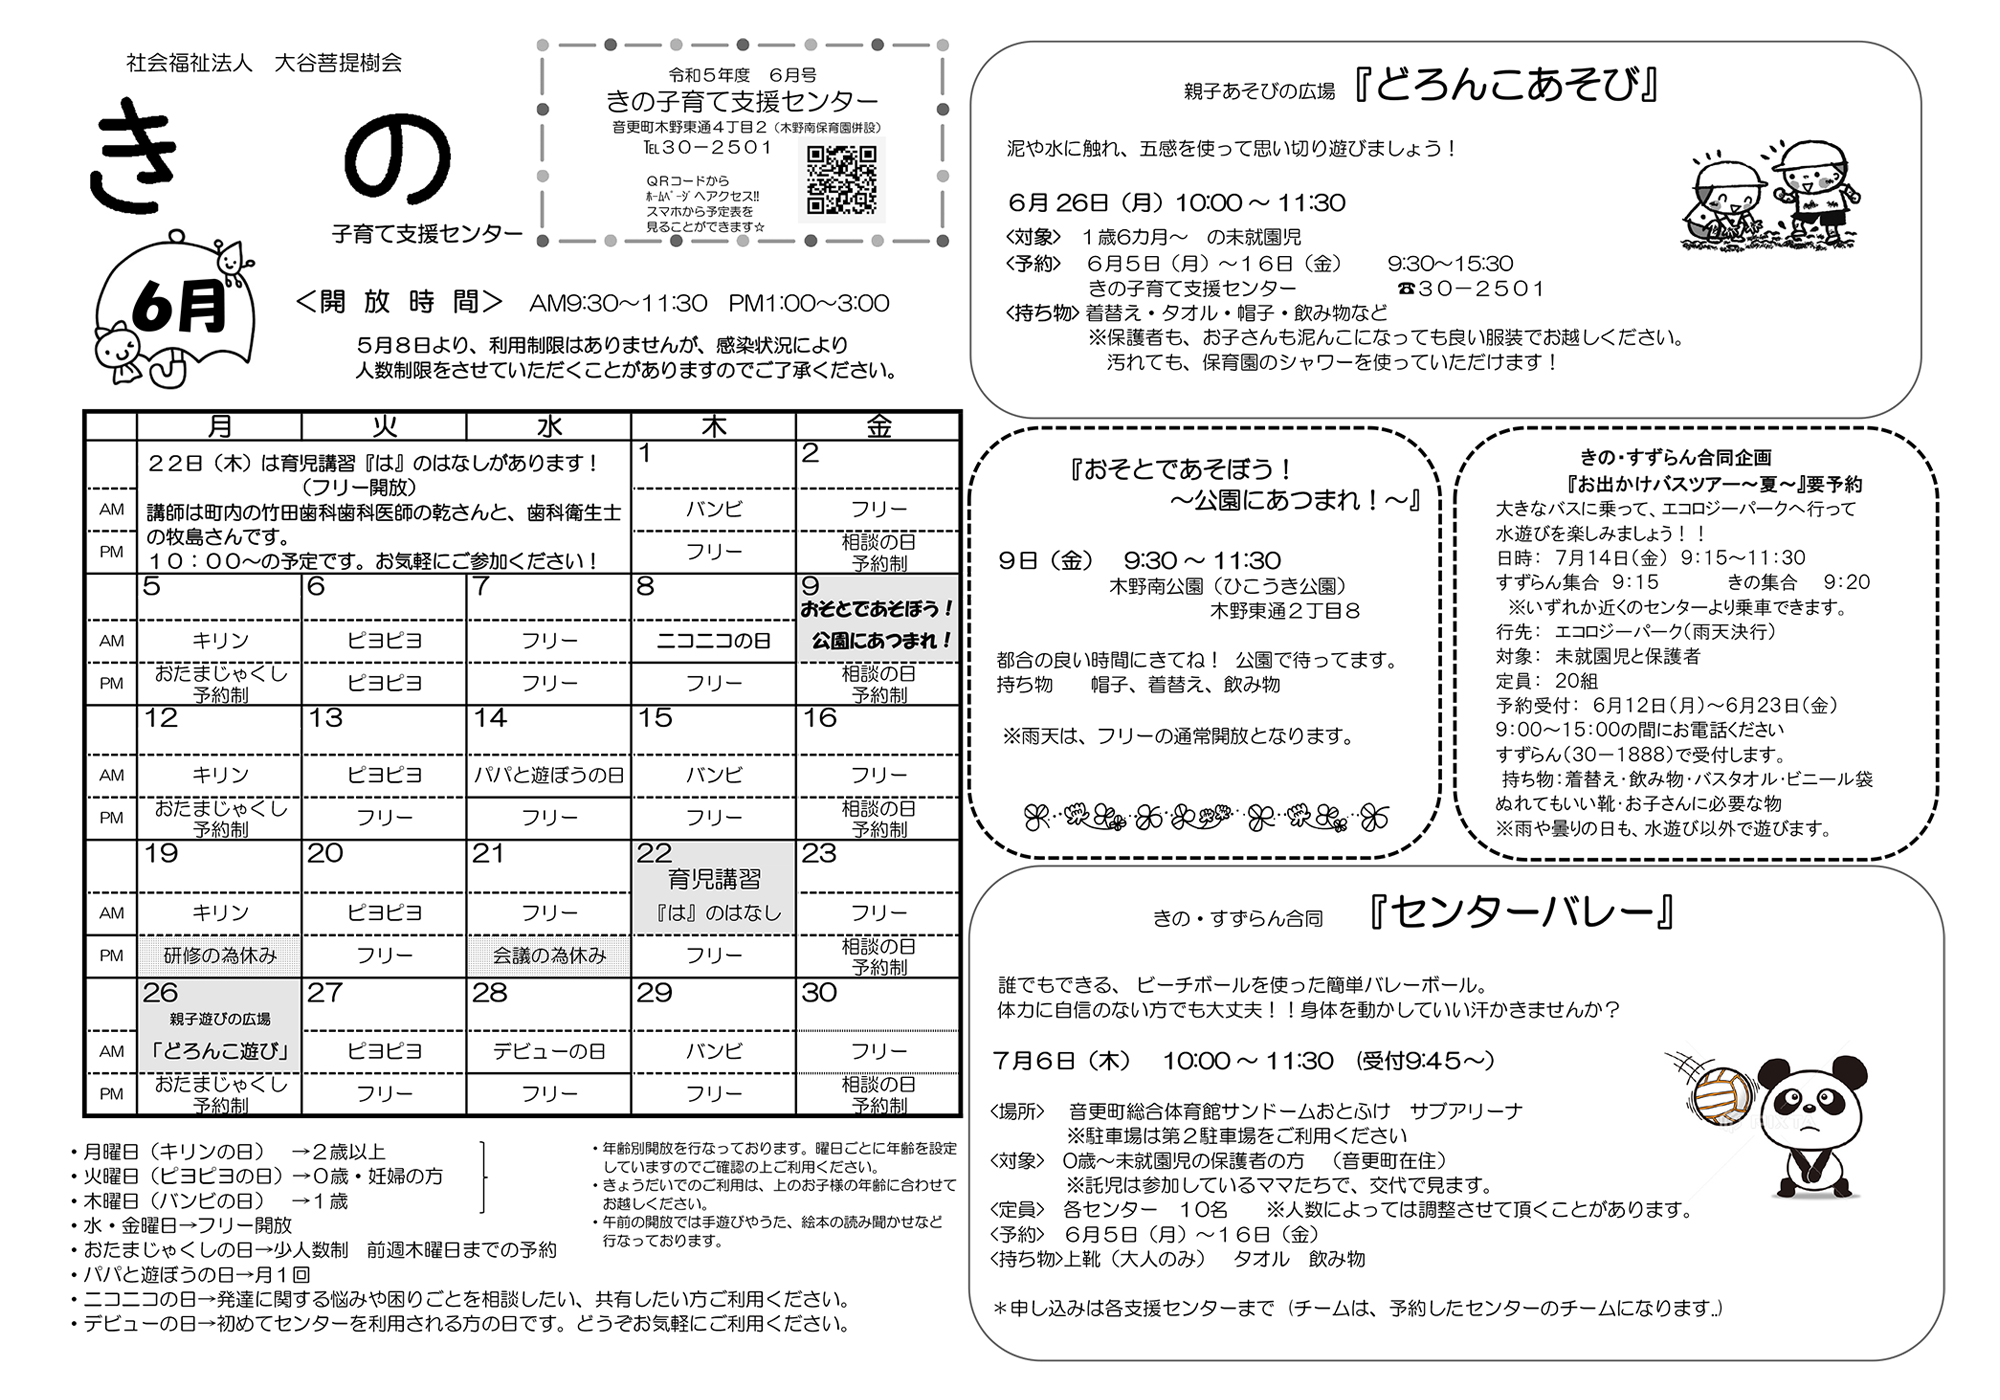 社会福祉法人　大谷菩提樹会
きの
子育て支援センター
6月
令和５年度　６月号
きの子育て支援センター
音更町木野東通４丁目２（木野南保育園併設）
℡３０－２５０１
ＱＲコードから
ﾎｰﾑﾍﾟｰｼﾞへアクセス!!
スマホから予定表を
見ることができます☆
＜開 放 時 間＞　AM9:30～11:30　PM1:00～3:00
５月８日より、利用制限はありませんが、感染状況により
人数制限をさせていただくことがありますのでご了承ください。
月　火　水　木　金
２２日（木）は育児講習『は』のはなしがあります！
（フリー開放）
講師は町内の竹田歯科歯科医師の乾さんと、歯科衛生士
の牧島さんです。
１０：００～の予定です。お気軽にご参加ください！
1　2
AM　バンビ　フリー
PM　フリー　相談の日
予約制
5　6　7　8　9
おそとであそぼう！
AM　キリン　ピヨピヨ　フリー　ニコニコの日　公園にあつまれ！
PM　おたまじゃくし　ピヨピヨ　フリー　フリー　相談の日
予約制　予約制
12　13　14　15　16
AM　キリン　ピヨピヨ　パパと遊ぼうの日　バンビ　フリー
PM　おたまじゃくし　フリー　フリー　フリー　相談の日
予約制　予約制
19　20　21　22　23
育児講習
AM　キリン　ピヨピヨ　フリー　『は』のはなし　フリー
PM　研修の為休み　フリー　会議の為休み　フリー　相談の日
予約制
26　27　28　29　30
親子遊びの広場
AM　「どろんこ遊び」　ピヨピヨ　デビューの日　バンビ　フリー
PM　おたまじゃくし　フリー　フリー　フリー　相談の日
予約制　予約制
・月曜日（キリンの日）　→２歳以上
・火曜日（ピヨピヨの日）→０歳・妊婦の方
・木曜日（バンビの日）　→１歳
・水・金曜日→フリー開放
・おたまじゃくしの日→少人数制　前週木曜日までの予約
・パパと遊ぼうの日→月１回
・ニコニコの日→発達に関する悩みや困りごとを相談したい、共有したい方ご利用ください。
・デビューの日→初めてセンターを利用される方の日です。どうぞお気軽にご利用ください。
・年齢別開放を行なっております。曜日ごとに年齢を設定
していますのでご確認の上ご利用ください。
・きょうだいでのご利用は、上のお子様の年齢に合わせて
お越しください。
・午前の開放では手遊びやうた、絵本の読み聞かせなど
行なっております。
親子あそびの広場　『どろんこあそび』
泥や水に触れ、五感を使って思い切り遊びましょう！
６月 26日（月）10:00 ～ 11:30
〈対象〉　１歳６カ月～　の未就園児
〈予約〉　６月５日（月）～１６日（金）　　9:30～15:30
きの子育て支援センター　　☎３０－２５０１
〈持ち物〉着替え・タオル・帽子・飲み物など
※保護者も、お子さんも泥んこになっても良い服装でお越しください。
汚れても、保育園のシャワーを使っていただけます！
『おそとであそぼう！
～公園にあつまれ！～』
９日（金）　9:30 ～ 11:30
木野南公園（ひこうき公園）
木野東通２丁目８
都合の良い時間にきてね！　公園で待ってます。
持ち物　　帽子、着替え、飲み物
※雨天は、フリーの通常開放となります。
きの・すずらん合同企画
『お出かけバスツアー～夏～』要予約
大きなバスに乗って、エコロジーパークへ行って
水遊びを楽しみましょう！！
日時： 7月14日(金) 9：15～11：30
すずらん集合 9：15　　きの集合　9：20
※いずれか近くのセンターより乗車できます。
行先： エコロジーパーク(雨天決行)
対象： 未就園児と保護者
定員： 20組
予約受付： 6月12日(月)～6月23日(金)
9：00～15：00の間にお電話ください
すずらん(30－1888)で受付します。
持ち物：着替え・飲み物・バスタオル・ビニール袋
ぬれてもいい靴・お子さんに必要な物
※雨や曇りの日も、水遊び以外で遊びます。
きの・すずらん合同　『センターバレー』
誰でもできる、 ビーチボールを使った簡単バレーボール。
体力に自信のない方でも大丈夫！！身体を動かしていい汗かきませんか？
７月６日（木）　10:00 ～ 11:30　(受付9:45～）
〈場所〉　音更町総合体育館サンドームおとふけ　サブアリーナ
※駐車場は第２駐車場をご利用ください
〈対象〉　０歳～未就園児の保護者の方　（音更町在住）
※託児は参加しているママたちで、交代で見ます。
〈定員〉　各センター　１０名　　※人数によっては調整させて頂くことがあります。
〈予約〉　６月５日（月）～１６日（金）
〈持ち物〉上靴（大人のみ）　タオル　飲み物
＊申し込みは各支援センターまで（チームは、予約したセンターのチームになります。）